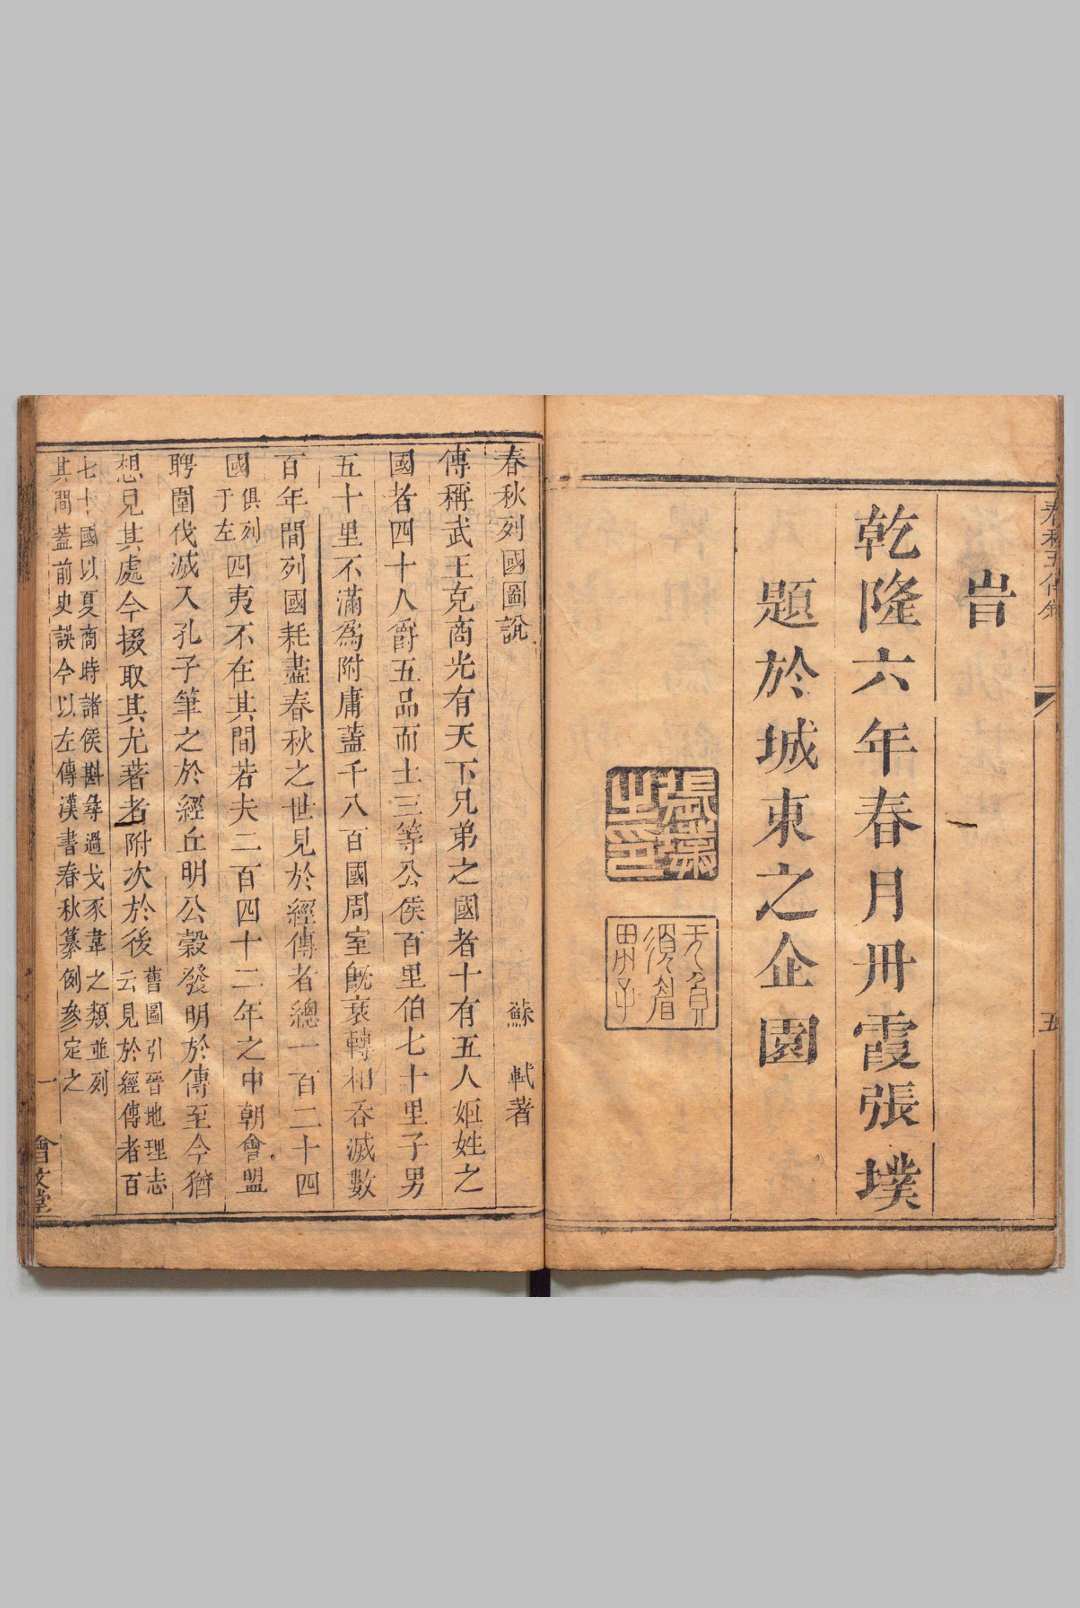 旹
乾隆六年春月丹霞張墣
題於城東之企園
張墣之印
春秋列國圖說
蘇軾著
傳稱武王克商光有天下兄弟之國者十有五人姬姓之
國者四十人爵五品而土三等公侯百里伯七十里子男
五十里不滿為附庸蓋千八百國周室既衰轉相吞滅數
百年間列國耗盡春秋之世見於經傳者總一百二十四
國俱列于左四夷不在其間若夫二百四十二年之中朝會盟
聘圍伐滅入孔子筆之於經丘明公穀發明於傳至今猶
想見其處今掇取其尤著者附次於後舊圖引晉地理志云見於經傳者百
七十國以夏商時諸侯斟㝷過戈豕韋之類並列
其間蓋前史誤今以左傳漢書春秋纂例參定之
一
會文堂